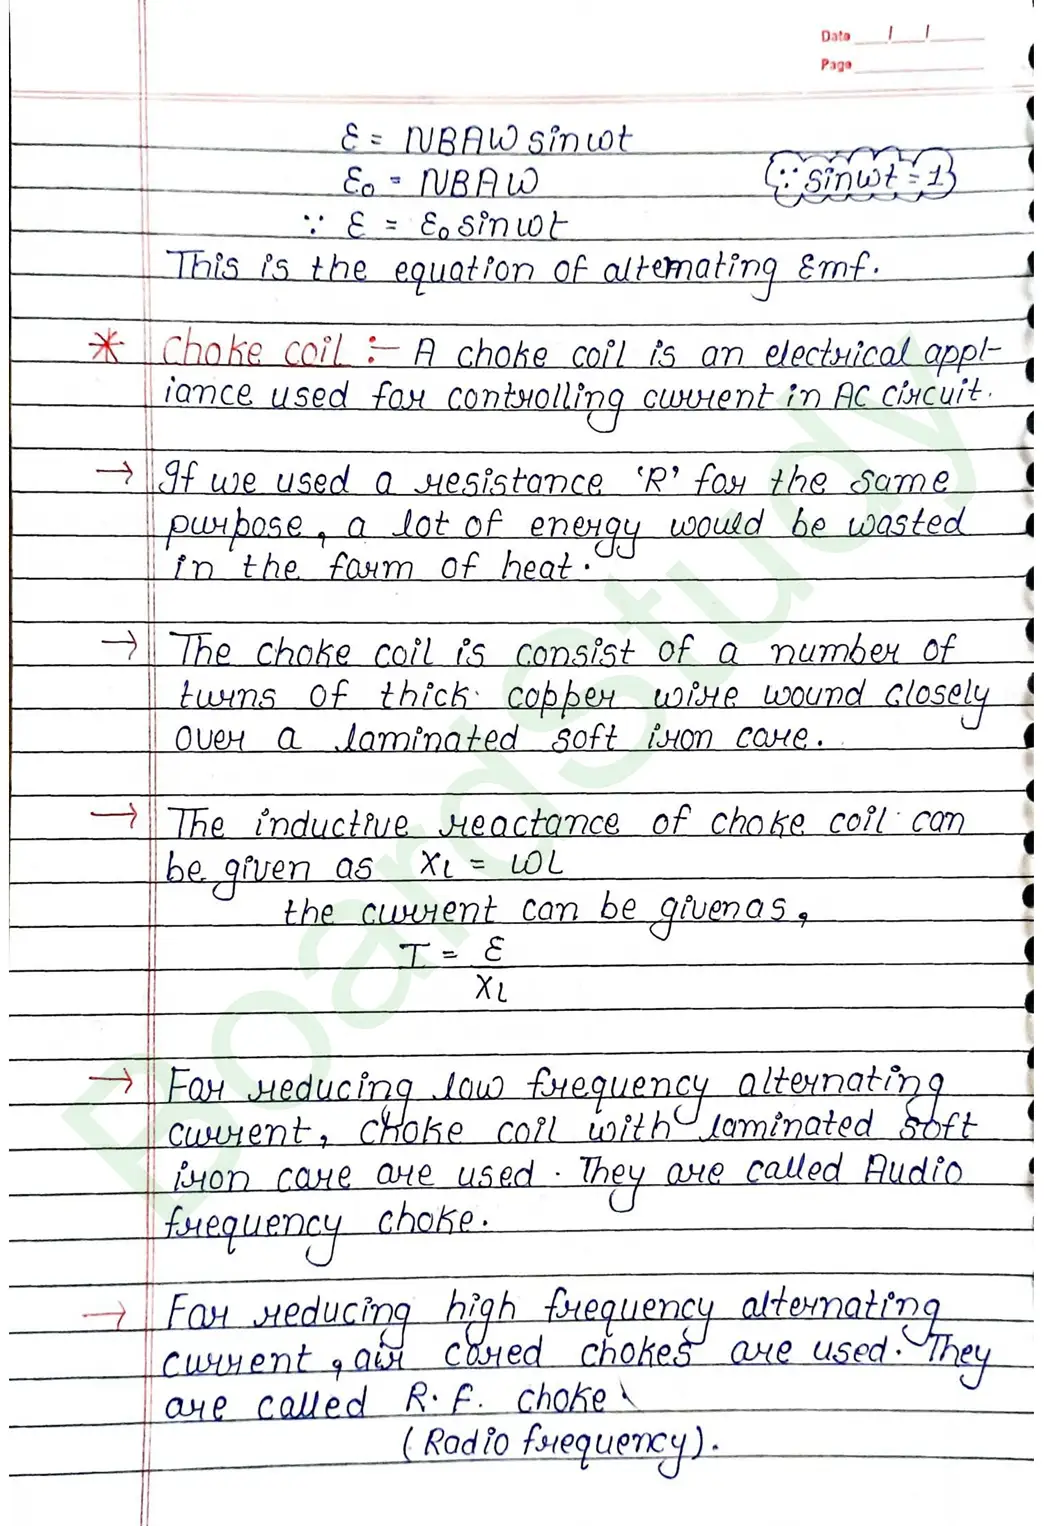 Date __/__/__
Page
ε = NBAW sinωt
ε₀ = NBAW
∵ sinωt = 1
∵ ε = ε₀ sinωt
This is the equation of alternating Emf.
* Choke coil :- A choke coil is an electrical appl-
iance used for controlling current in AC circuit.
→ If we used a resistance 'R' for the same
purpose, a lot of energy would be wasted
in the form of heat.
→ The choke coil is consist of a number of
turns of thick copper wire wound closely
over a laminated soft iron core.
→ The inductive reactance of choke coil can
be given as XL = ωL
the current can be given as,
I = ε
XL
→ For reducing low frequency alternating
current, choke coil with laminated soft
iron core are used. They are called Audio
frequency choke.
→ For reducing high frequency alternating
current, air cored chokes are used. They
are called R.F. choke
(Radio frequency).
BoardStudy